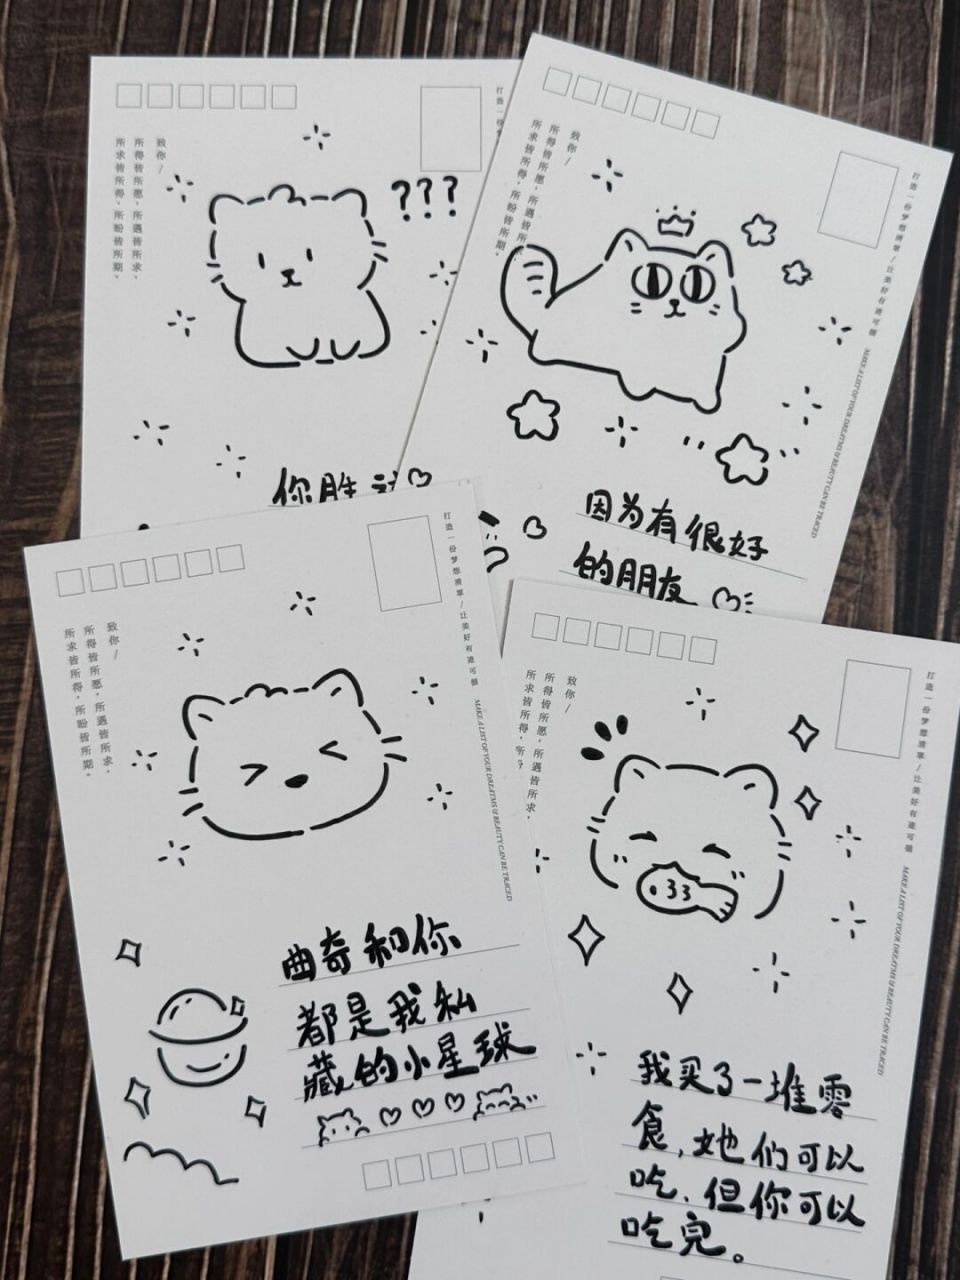 致你/
所得皆所愿，所遇皆所求，
所求皆所得，所盼皆所期。
???
你胜
致你/
所得皆所愿，所遇皆所求，
所求皆所得，所盼皆所期。
打造一份梦想清单/让美好有迹可循
MAKE A LIST OF YOUR DREATMS & BEAUTY CAN BE TRACED
因为有很好
的朋友
致你/
所得皆所愿，所遇皆所求，
所求皆所得，所盼皆所期。
打造一份梦想清单/让美好有迹可循
MAKE A LIST OF YOUR DREATMS & BEAUTY CAN BE TRACED
曲奇和你
都是我私
藏的小星球
致你/
所得皆所愿，所遇皆所求，
所求皆所得，所
打造一份梦想清单/让美好有迹可循
MAKE A LIST OF YOUR DREATMS & BEAUTY CAN BE TRACED
我买了一堆零
食，她们可以
吃，但你可以
吃完。